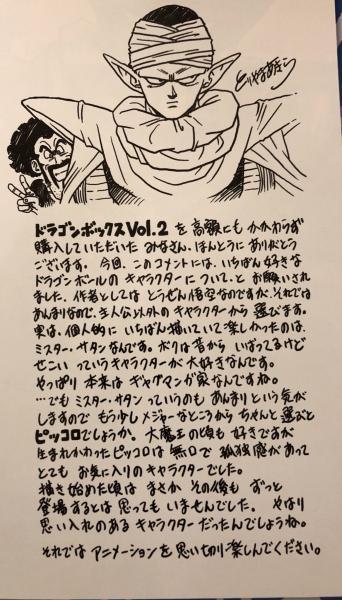 とりやまあきら
ドラゴンボックスVol.2 を 高額にも かかわらず
購入していただいた みなさん、ほんとうに ありがとう
ございます。 今回、このコメントには、いちばん好きな
ドラゴンボールの キャラクターについて、と お願いされ
ました。作者としては とうぜん悟空なのですが、それでは
あんまりなので、主人公以外のキャラクターから 選びます。
実は、個人的に いちばん描いていて楽しかったのは、
ミスター・サタンなんです。ボクは昔から いばってるけど
せこい っていうキャラクターが 大好きなんです。
やっぱり 本来は ギャグマンガ家なんですね。
…でも ミスター・サタン っていうのも あんまり という気が
しますので もう少しメジャーなところから ちゃんと 選ぶと
ピッコロでしょうか。 大魔王の頃も 好きですが
生まれかわった ピッコロは 無口で 孤独感があって
とても お気に入りのキャラクターでした。
描き始めた頃は まさか その後も ずっと
登場するとは 思っても いませんでした。 やはり
思い入れのある キャラクターだったんでしょうね。
それでは アニメーションを 思い切り楽しんでください。